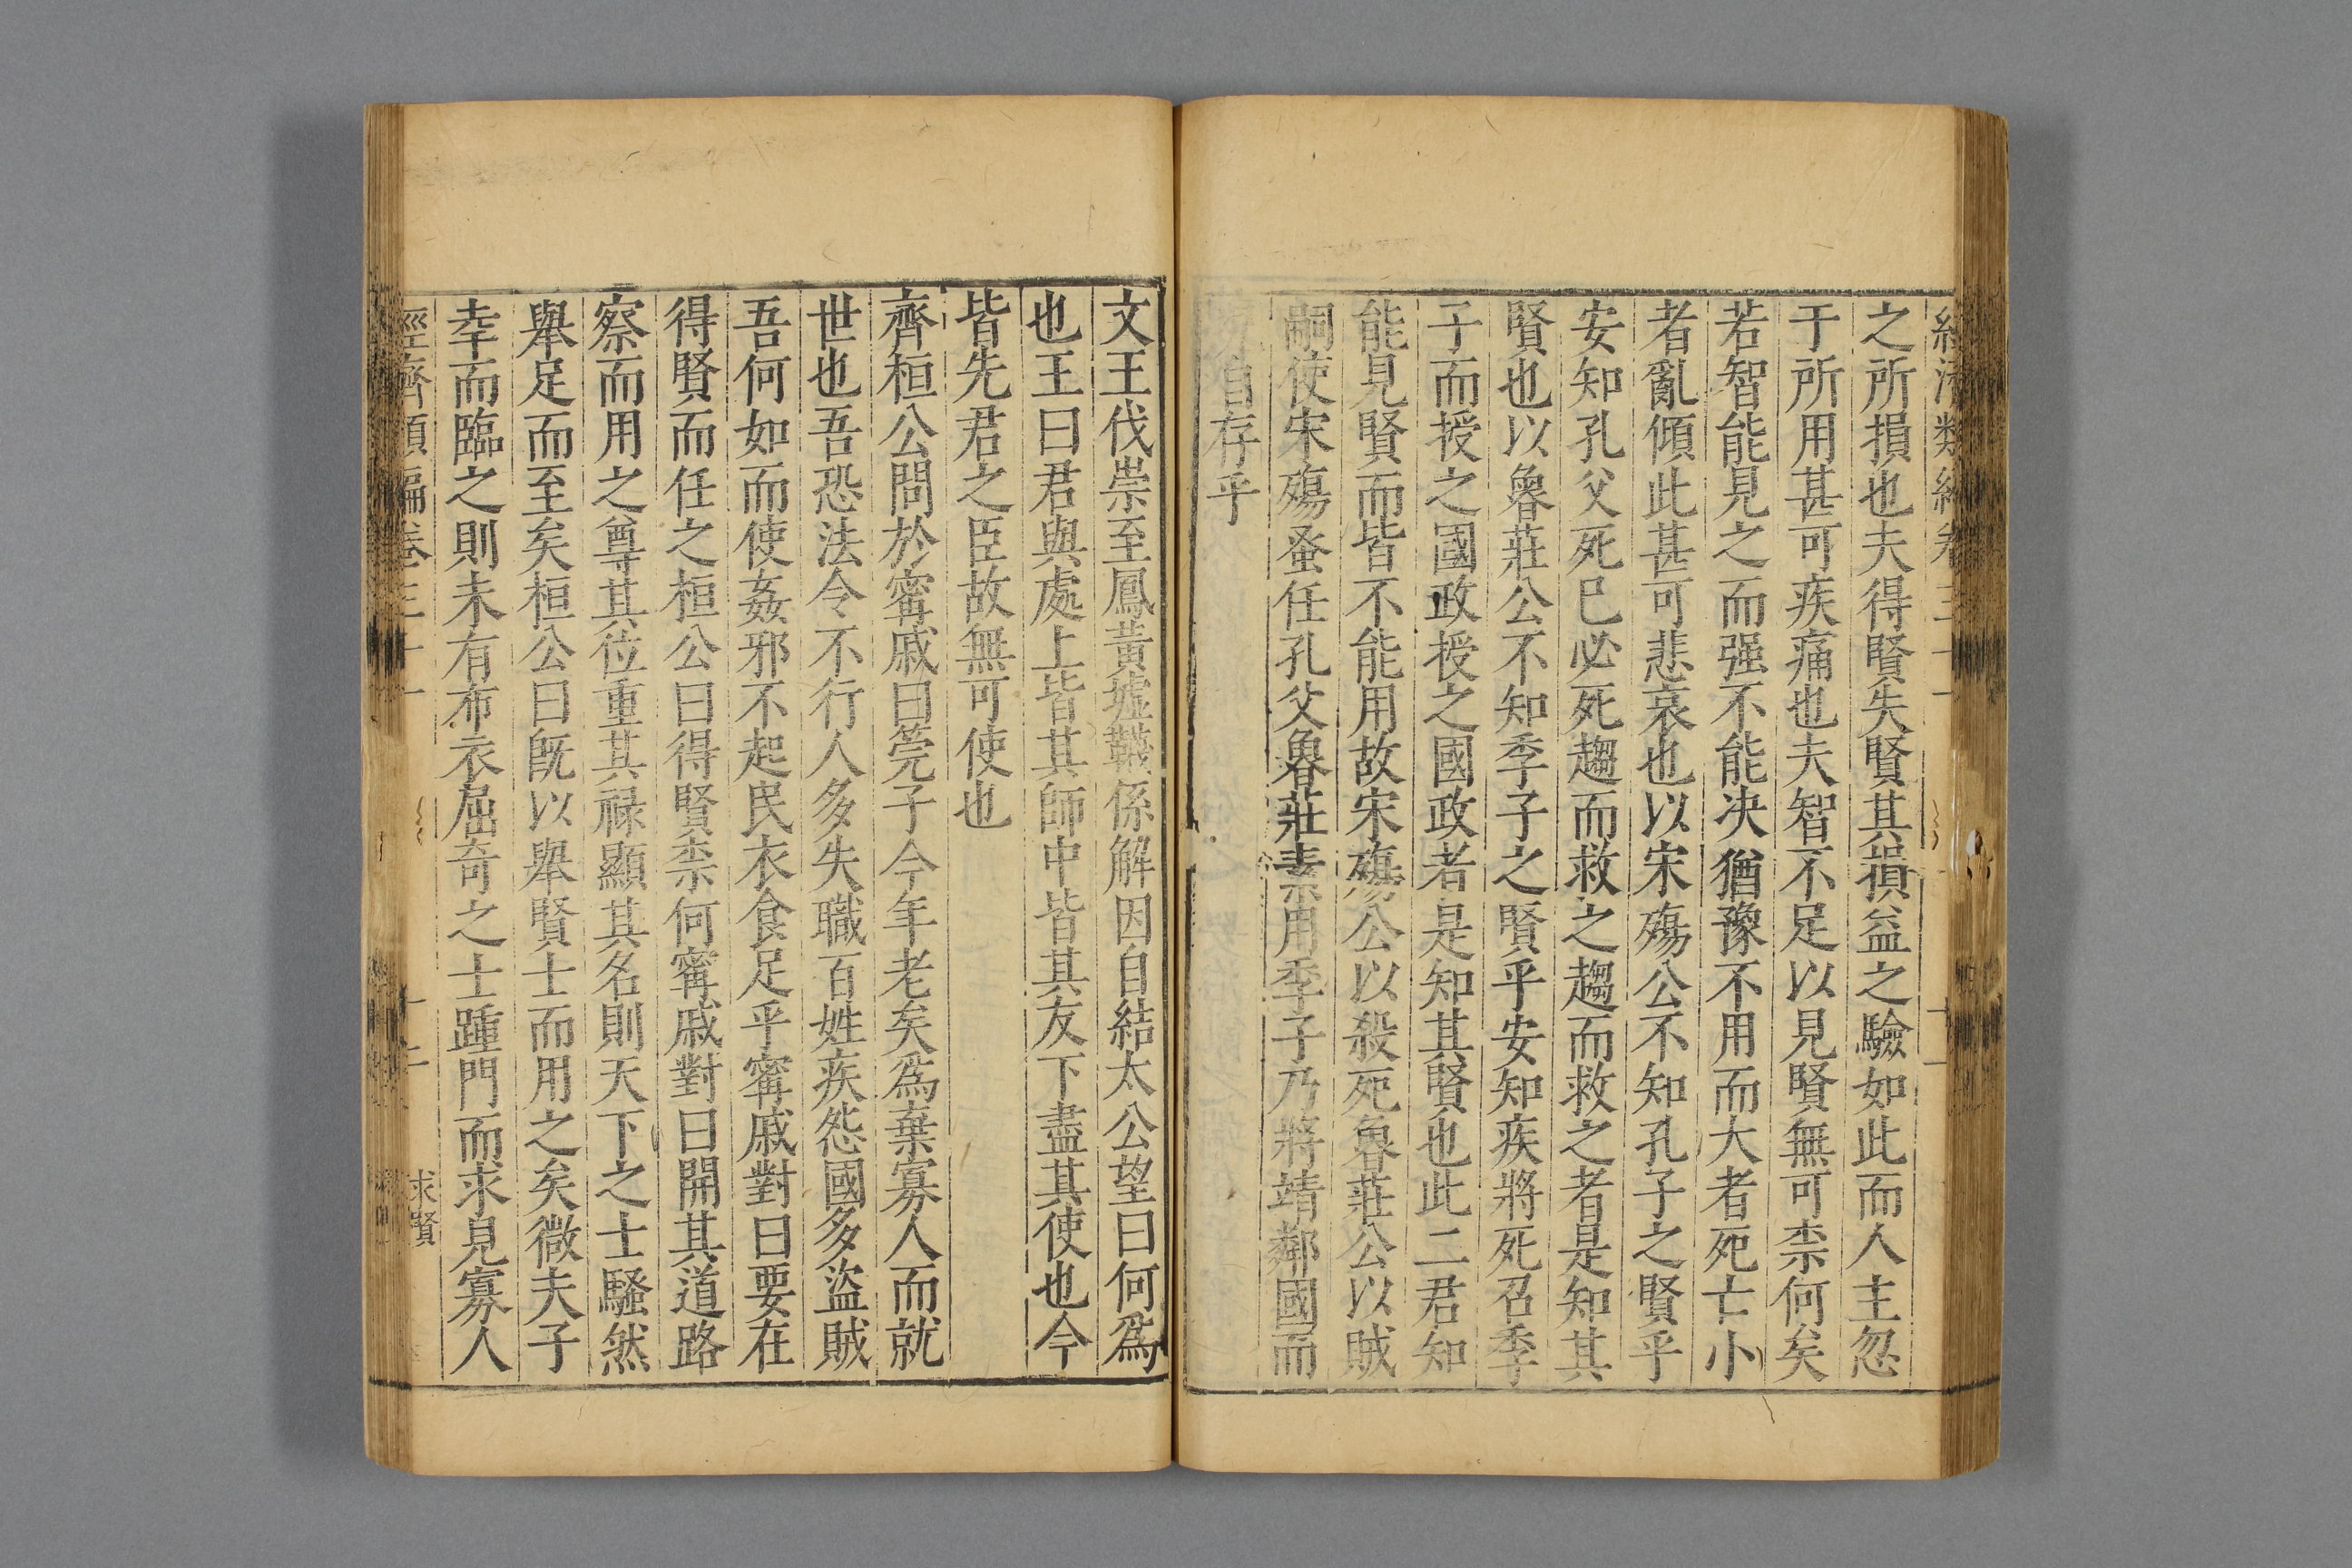 之所損也夫得賢失賢其損益之驗如此而人主忽
于所用甚可疾痛也夫智不足以見賢無可柰何矣
若智能見之而强不能决猶豫不用而大者死亡小
者亂傾此甚可悲哀也以宋殤公不知孔子之賢乎
安知孔父死巳必死趨而救之趨而救之者是知其
賢也以魯莊公不知季子之賢乎安知疾將死召季
子而授之國政授之國政者是知其賢也此二君知
能見賢而皆不能用故宋殤公以殺死魯莊公以賊
嗣使宋殤蚤任孔父魯莊素用季子乃將靖鄰國而
自存乎
文王伐崇至鳳黃墟韈係解因自結太公望曰何爲
也王曰君與處上皆其師中皆其友下盡其使也今
皆先君之臣故無可使也
齊桓公問於甯戚曰筦子今年老矣爲棄寡人而就
世也吾恐法令不行人多失職百姓疾怨國多盜賊
吾何如而使姦邪不起民衣食足乎甯戚對曰要在
得賢而任之桓公曰得賢柰何甯戚對曰開其道路
察而用之尊其位重其祿顯其名則天下之士騷然
舉足而至矣桓公曰旣以舉賢士而用之矣微夫子
幸而臨之則未有布衣屈奇之士踵門而求見寡人
經濟類編卷三十一 十二 求賢